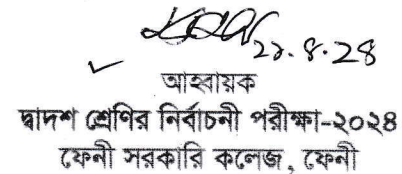 ২২.৪.২৪
আহবায়ক
দ্বাদশ শ্রেণির নির্বাচনী পরীক্ষা-২০২৪
ফেনী সরকারি কলেজ, ফেনী